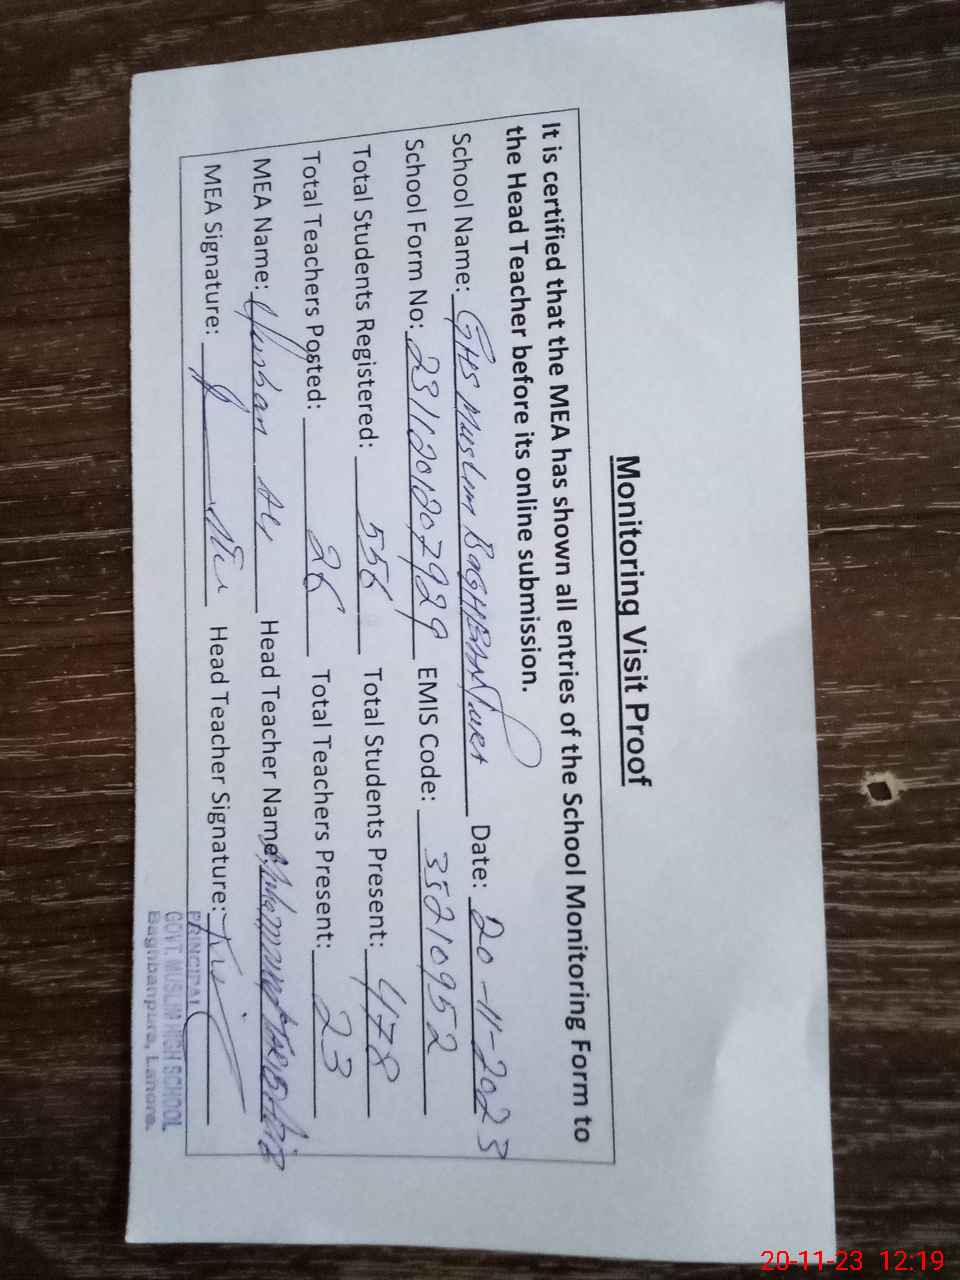 Monitoring Visit Proof
It is certified that the MEA has shown all entries of the School Monitoring Form to
the Head Teacher before its online submission.
School Name: GHS Muslim BAGHBANPURA Date: 20-11-2023
School Form No: 231120120792 9 EMIS Code: 35210952
Total Students Registered: 556 Total Students Present: 478
Total Teachers Posted: 26 Total Teachers Present: 23
MEA Name: Head Teacher Name:
MEA Signature: Head Teacher Signature:
PRINCIPAL
GOVT. MUSLIM HIGH SCHOOL
Baghbanpura, Lahore.
20-11-23 12:19